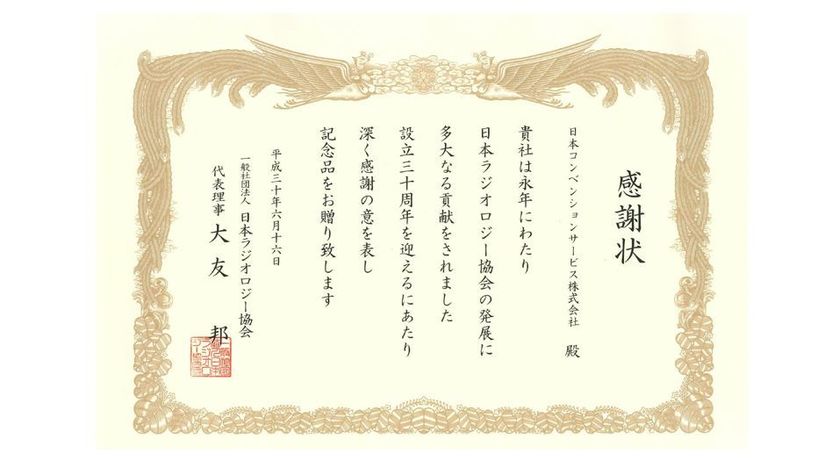 感謝状
日本コンベンションサービス株式会社 殿
貴社は永年にわたり
日本ラジオロジー協会の発展に
多大なる貢献をされました
設立三十周年を迎えるにあたり
深く感謝の意を表し
記念品をお贈り致します
平成三十年六月十六日
一般社団法人 日本ラジオロジー協会
代表理事 大友 邦